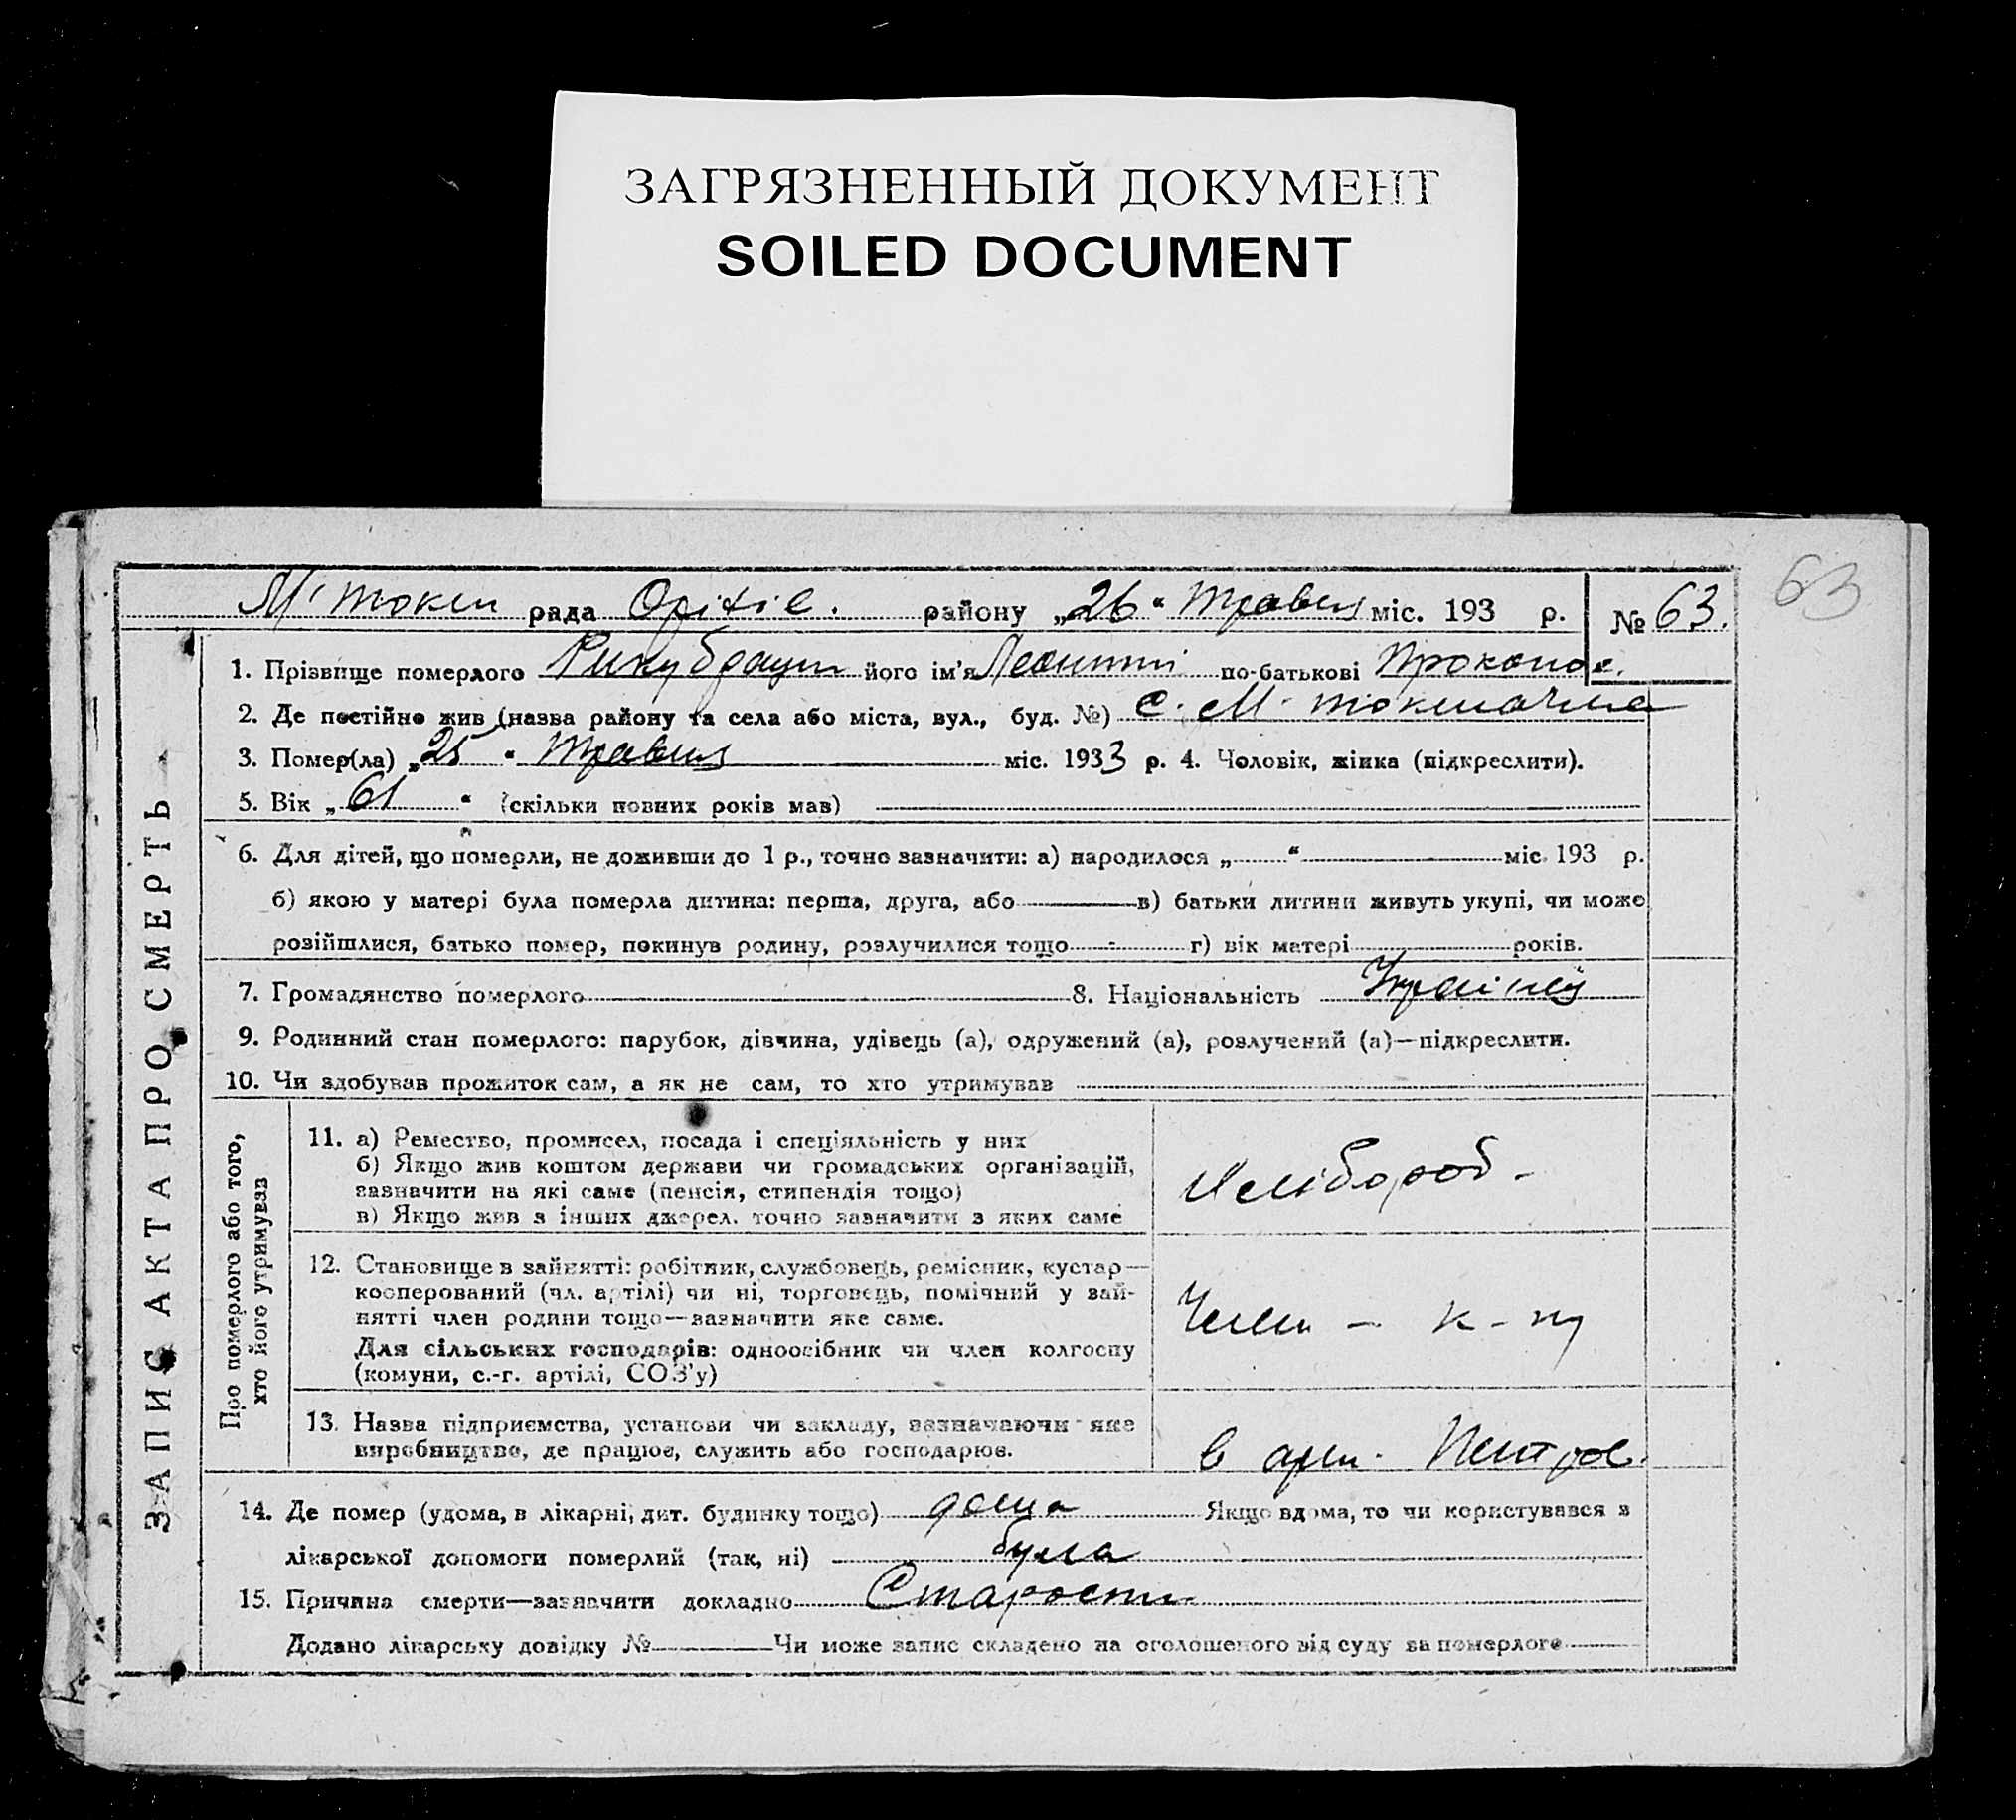 ЗАГРЯЗНЕННЫЙ ДОКУМЕНТ
SOILED DOCUMENT
63
М. Токм рада Оріхів. району „26“ Травня міс. 193 р. № 63.
1. Прізвище померлого його ім'я Леонтій по-батькові Прокопов.
2. Де постійно жив (назва району та села або міста, вул., буд. №) С. М. Токмачка
3. Помер(ла) „25“ Травня міс. 1933 р. 4. Чоловік, жінка (підкреслити).
5. Вік „61“ (скільки повних років мав)
6. Для дітей, що померли, не доживши до 1 р., точно зазначити: а) народилося „ “ міс. 193 р.
б) якою у матері була померла дитина: перша, друга, або в) батьки дитини живуть укупі, чи може
розійшлися, батько помер, покинув родину, розлучилися тощо г) вік матері років.
7. Громадянство померлого 8. Національність
9. Родинний стан померлого: парубок, дівчина, удівець (а), одружений (а), розлучений (а)—підкреслити.
10. Чи здобував прожиток сам, а як не сам, то хто утримував
ЗАПИС АКТА ПРО СМЕРТЬ
Про померлого або того,
хто його утримував
11. а) Ремество, промисел, посада і спеціяльність у них
б) Якщо жив коштом держави чи громадських організацій,
зазначити на які саме (пенсія, стипендія тощо)
в) Якщо жив з інших джерел, точно зазначити з яких саме
Хлібороб -
12. Становище в зайнятті: робітник, службовець, ремісник, кустар—
кооперований (чл. артілі) чи ні, торговець, помічний у зай-
нятті член родини тощо—зазначити яке саме.
Для сільських господарів: одноосібник чи член колгоспу
(комуни, с.-г. артілі, СОЗ'у)
Член - к-пу
13. Назва підприємства, установи чи закладу, зазначаючи яке
виробництво, де працює, служить або господарює.
в арт. Петров.
14. Де помер (удома, в лікарні, дит. будинку тощо) дома Якщо вдома, то чи користувався з
лікарської допомоги померлий (так, ні) була
15. Причина смерти—зазначити докладно Старости
Додано лікарську довідку № Чи може запис складено на оголошеного від суду за померлого